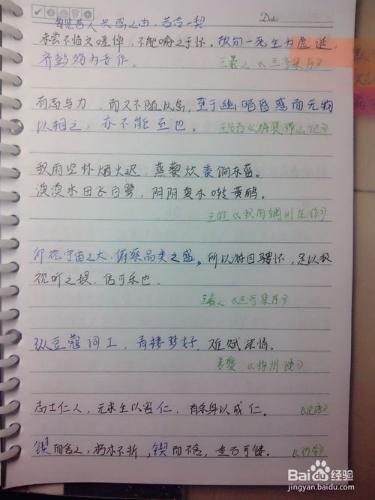 每览昔人兴感之由,若合一契
未尝不临文嗟悼,不能喻之于怀,固知一死生为虚诞,
齐彭殇为妄作。
王羲之《兰亭集序》
有志与力,而又不随以怠,至于幽暗昏惑而无物
以相之,亦不能至也。
王安石《游褒禅山记》
积雨空林烟火迟,蒸藜炊黍饷东菑。
漠漠水田飞白鹭,阴阴夏木啭黄鹂。
王维《积雨辋川庄作》
仰观宇宙之大,俯察品类之盛。所以游目骋怀,足以极
视听之娱,信可乐也。
王羲之《兰亭集序》
纵豆蔻词工,青楼梦好,难赋深情。
姜夔《扬州慢》
志士仁人,无求生以害仁,有杀身以成仁。
《论语》
锲而舍之,朽木不折,锲而不舍,金石可镂。
《劝学》
Bai 百度经验
jingyan.baidu.com